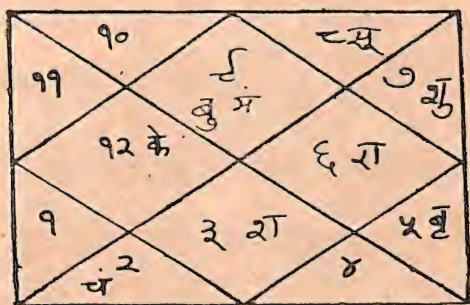 १०
८ सू
११
९
बु मं
७
शु
१२ के
६ रा
१
३ श
५ बृ
चं २
४